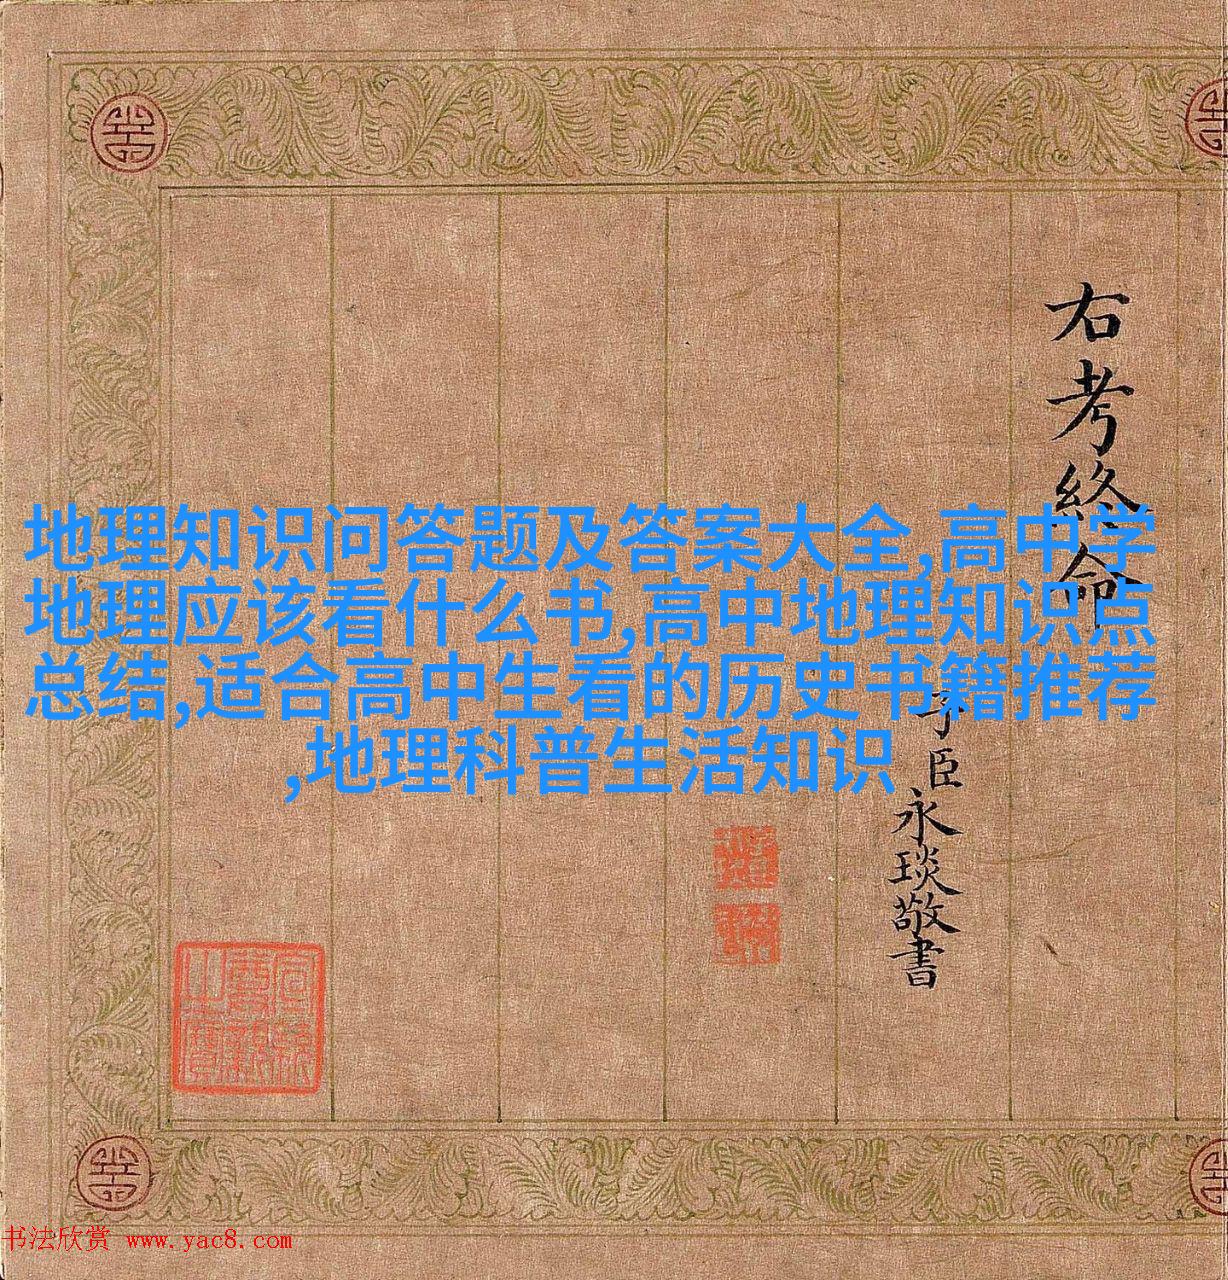 右考終命
子臣永琰敬書
地理知识问答题及答案大全,高中学
地理应该看什么书,高中地理知识点
总结,适合高中生看的历史书籍推荐
,地理科普生活知识
书法欣赏 www.yac8.com